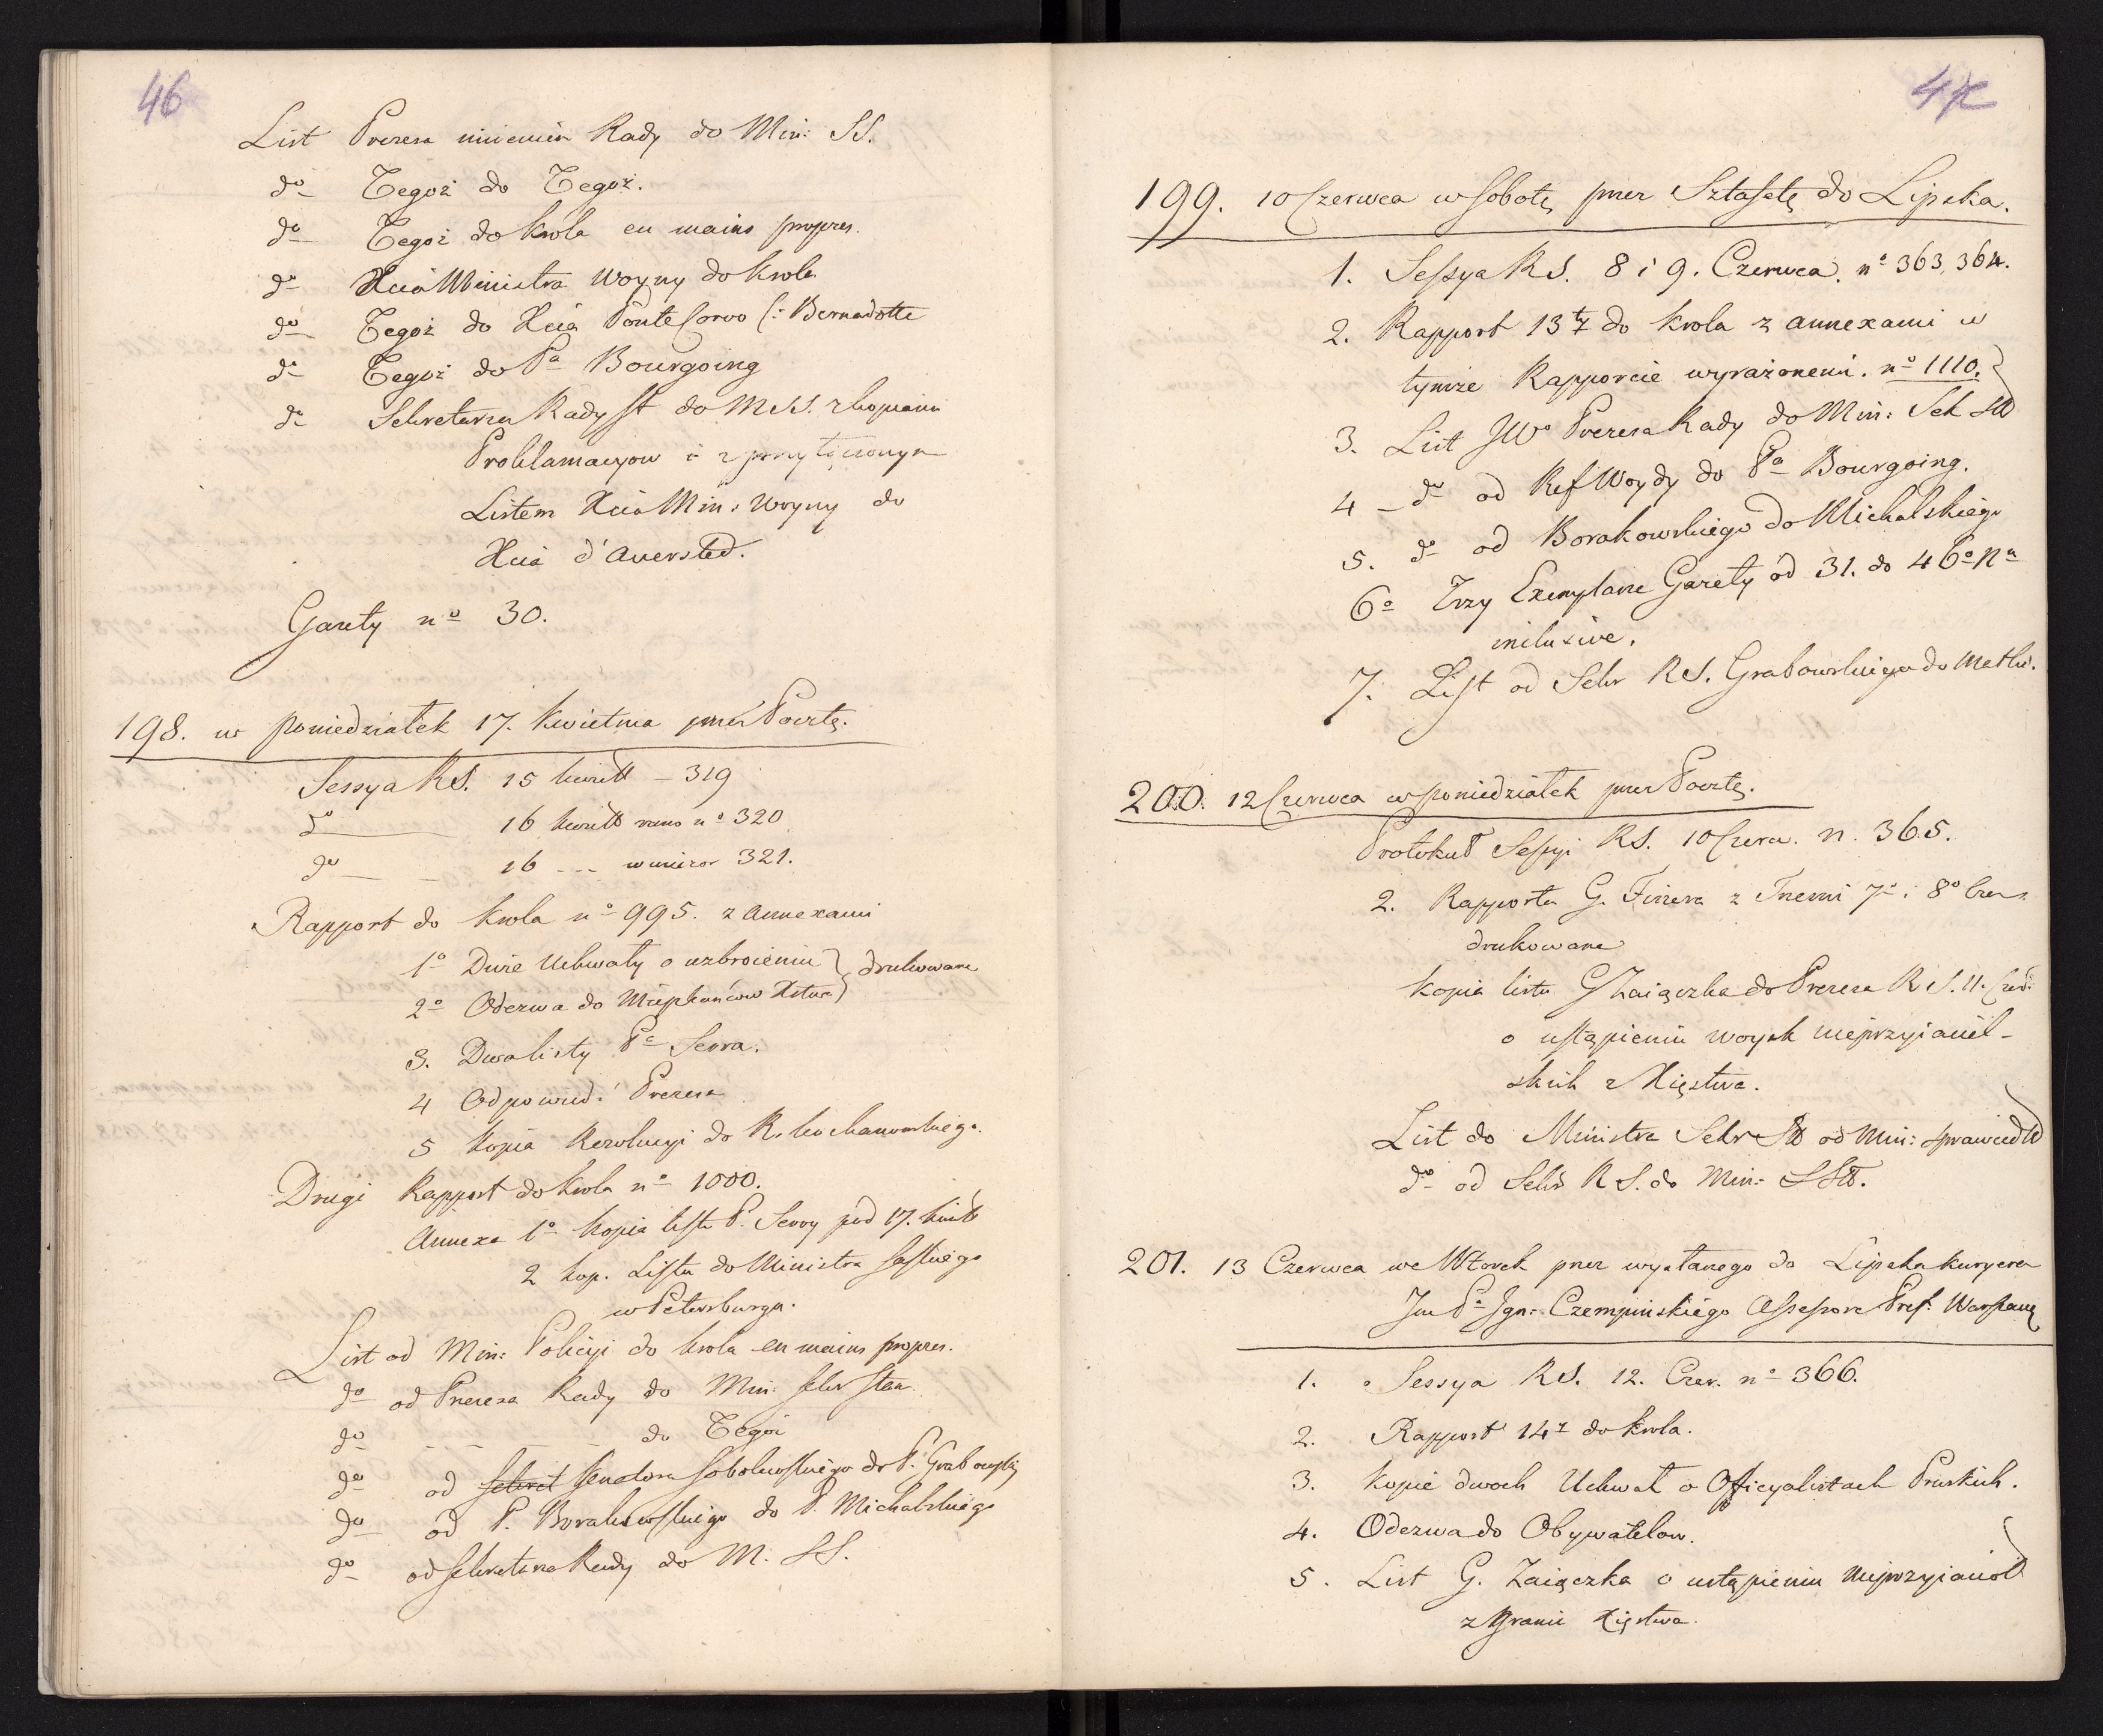 46
List Prezesa imieniem Rady do Min: SS.
do Tegoż do Tegoż.
do Tegoż do Krola en mains propres.
do Xcia Ministra Woyny do Krola
do Tegoż do Xcia Ponte Corvo (: Bernadotte
do Tegoż do Pa Bourgoing
do Sekretarza Rady St do MSS. z kopiami
Proklamacyow i z przyłączonym
Listem Xcia Min: Woyny do
Xcia d'Auersted.
Gazety no 30.
198. w poniedziałek 17. Kwietnia przez Pocztę.
Sessya RS. 15 kwiet – 319
do 16 kwiet rano no 320
do 16 --- wieczor 321.
Rapport do Krola no 995. z annexami
1o Dwie Uchwały o uzbroieniu } drukowane
2o Odezwa do Mieszkańcow Xstwa }
3. Dwa listy Pa Serra.
4 Odpowied: Prezesa
5 Kopia Rezolucyi do R. Kochanowskiego.
Drugi Rapport do Krola no 1000.
Annexa 1o Kopia listu P. Serry pod 17. kwiet
2 kop. Listu do Ministra Saskiego
w Petersburgu.
List od Min: Policyi do Krola en mains propres.
do od Prezesa Rady do Min: Sekr Stan
do - - - - do Tegoż
do od Sekret Senatora Sobolewskiego do P. Grabowskiej
do od P. Borakowskiego do P. Michalskiego
do od Sekretarza Rady do M. SS.
47
199. 10 Czerwca w Sobotę przez Sztafetę do Lipska.
1. Sessya RS. 8 i 9. Czerwca. no 363, 364.
2. Rapport 13ty do Krola z annexami w
tymże Rapporcie wyrażonemi. no 1110.
3. List JWo Prezesa Rady do Min: Sek Stt
4 – do od Ref Woydy do Pa Bourgoing.
5. do od Borakowskiego do Michalskiego
6o Trzy Exemplarze Gazety od 31. do 46o No
inclusive.
7. List od Sekr RS. Grabowskiego do
200. 12 Czerwca w poniedziałek przez Pocztę.
Protokuł Sessyi RS. 10 Czerw. n. 365.
2. Rapporta G. Fiszera z Trzemi 7o i 8o Czer.
drukowane
Kopia listu G Zaiączka do Prezesa RS. 11. Czer.
o ustąpieniu woysk nieprzyiaciel-
skich z Xięstwa.
List do Ministra Sekr Stt od Min: Sprawiedl
do od Sekr RS. do Min: SStt.
201. 13 Czerwca we Wtorek przez wysłanego do Lipska kuryera
Jm Pa Ign: Czempińskiego Assessora Pref. Warszaws
1. Sessya RS. 12. Czer. no 366.
2. Rapport 14y do Krola.
3. Kopie dwoch Uchwał o Officyalistach Pruskich.
4. Odezwa do Obywatelow.
5. List G. Zaiączka o ustąpieniu nieprzyiacioł
z Granic Xięstwa.